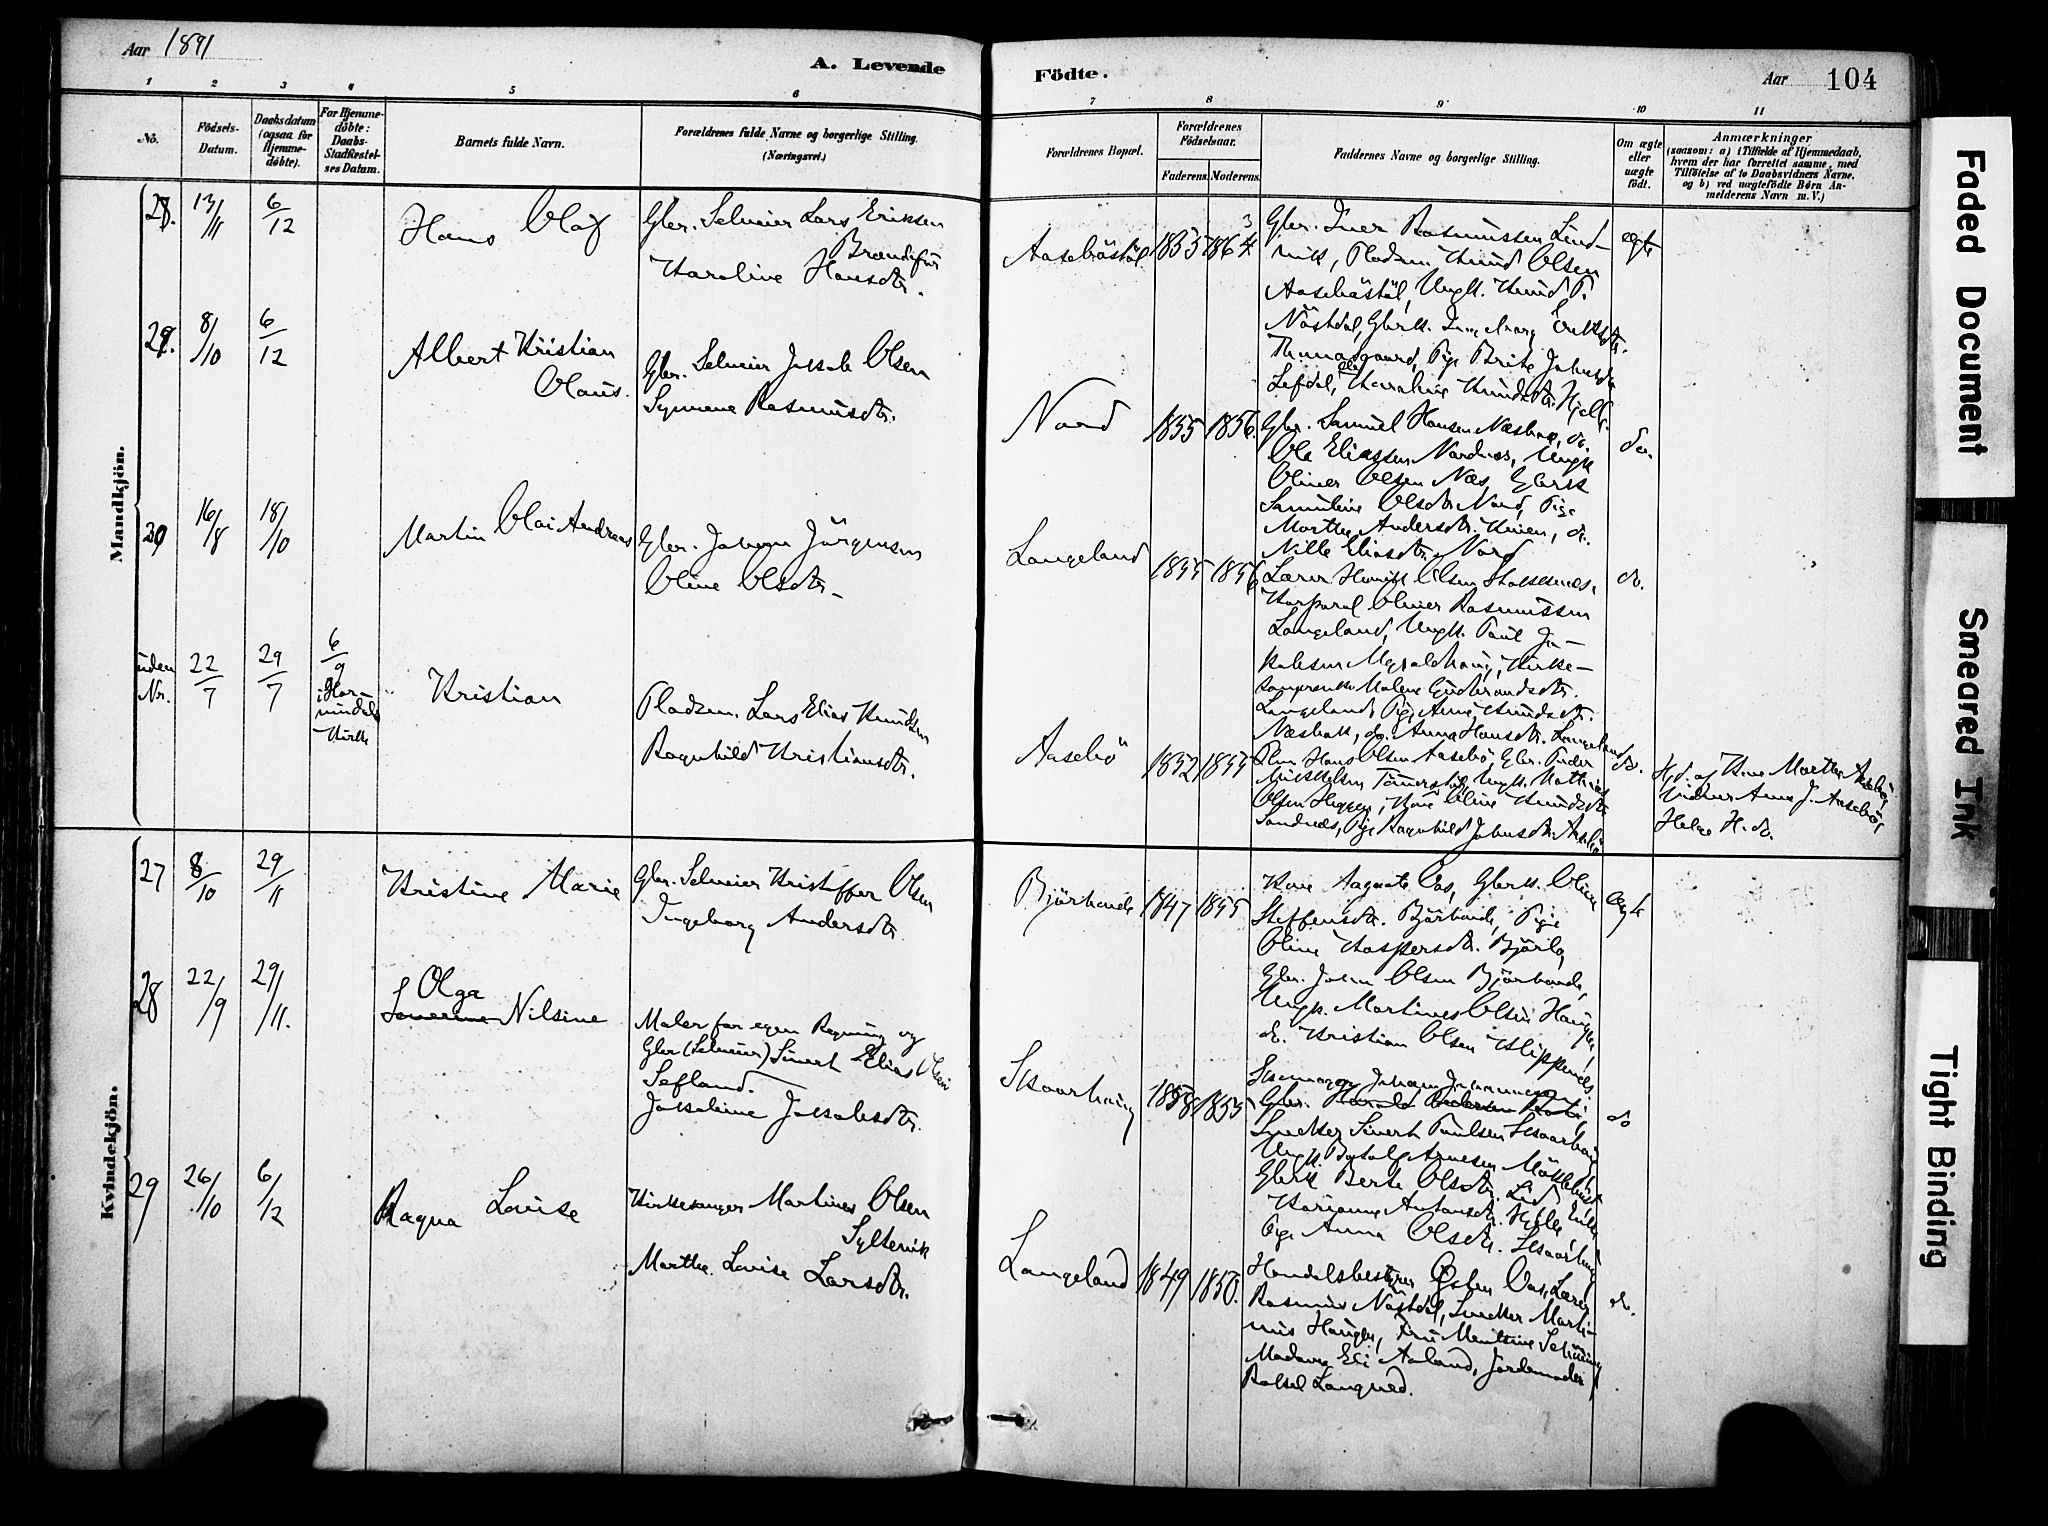 Aar 1891
A. Levende
Födte.
Aar
104
1
2
3
4
5
6
7
8
9
10
11
No.
Födsels-Datum.
Daabsdatum (ogsaa for Hjemmedöbte).
For Hjemmedöbte: Daabs-Stadfæstelses Datum.
Barnets fulde Navn.
Forældrenes fulde Navne og borgerlige Stilling.
(Næringsvei.)
Forældrenes Bopæl.
Forældrenes Födselsaar.
Faderens.
Moderens.
Faddernes Navne og borgerlige Stilling.
Om ægte eller uægte födt.
Anmærkninger
(saasom: a) i Tilfælde af Hjemmedaab, hvem der har forrettet samme, med Tilföielse af to Daabsvidners Navne, og b) ved uægtefödte Börn Anmelderens Navn m. V.)
Mandkjön.
28. 13/11 6/12
Hans Olaf
Gbr. Selveier Lars Eriksen
Karoline Hansdtr.
Aaseböstöl 1855 1864
Gbr. Iver Rasmussen
Pladsm. Knud Olsen
Aaseböstöl, Ungk. Knud P.
Nöstdal,
Pige Brite
Lefdal, Karoline Knudsdtr. Hjelle.
ægte
29. 8/10 6/12
Albert Kristian
Olaus.
Gbr. Selveier Jakob Olsen
Synneve Rasmusdtr.
Nord 1855 1856.
Gbr. Samuel Hansen Næsbak, do.
Ole Eliassen Nordnes, Ungk
Oliver Olsen Næs, Gbrk
Samuline Olsdtr. Nord, Pige
Marthe Andersdtr. do.
Nille Eliasdtr. Nord
do.
30 16/8 18/10
Martin Olai Andreas
Gbr. Johan Jörgensen
Oline Olsdtr.
Langeland 1855 1856
Lærer Henrik Olsen
Korporal Oliver Rasmussen
Langeland, Ungk. Paul Ja-
kobsen Myroldhaug, Kirke-
sangersk. Malene Gudbrandsdtr.
Langeland, Pige Anne Knudsdtr.
Næsbak, do. Anna Hansdtr. Langeland
do.
uden
Nr.
22/7 29/7 6/9
i Hor-
nindals
Kirke
Kristian
Pladsm. Lars Elias Knudsen
Ragnhild Kristiansdtr.
Aasebö 1852 1855
Hans Olsen Aasebö, Gbr. Peder
Ungk. Mathias
Olsen Heggen, Kone Oline Knudsdtr
Sandnes, Pige Ragnhild Johnsdtr. Aasebö
do.
Hjd. af Kone Marthe Aasebö,
Vidner Anne J. Aasebö,
Helge H. do.
Kvindekjön.
27 8/10 29/11
Kristine Marie
Gbr. Selveier Kristoffer Olsen
Ingeborg Andersdtr.
Björhovde 1847 1855
Kone Aagaate Oas, Gbrk. Oline
Steffensdtr. Björhovde, Pige
Oline Kaspersdtr. Björlo,
Gbr. Johan Olsen Björhovde,
Ungk. Martines Olsen Haugen,
do. Kristian Olsen Klippenes.
ægte
28 22/9 29/11.
Olga
Severine Nilsine
Maler for egen Regning og
Gbr (Selveier) Sivert Elias Olsen
Sefland.
Jakobine Jakobsdtr.
Skaarhaug 1858 1855
Skomager Johan Johannesen
Gbr. Harald Andersen
Snedker Sivert Paulsen Skaarhaug
Ungk. Botolf Arnesen Möklebust
Gbrk Berte Olsdtr. Lid, Enke
Karianne Antonsdtr. Hjelle,
Pige Anna Olsdtr. Skaarhaug
do
29 26/10 6/12
Ragna Lovise
Kirkesanger Martines Olsen
Syltervik
Marthe Lovise Larsdtr.
Langeland 1849 1850.
Handelsbestyrer Östen Oas, Lærer
Rasmus Nöstdal, Snedker Marti-
nus Haugen, Fru
Madame Eli Aaland, Jordemoder
Rakel
do.
Faded Document
Smeared Ink
Tight Binding